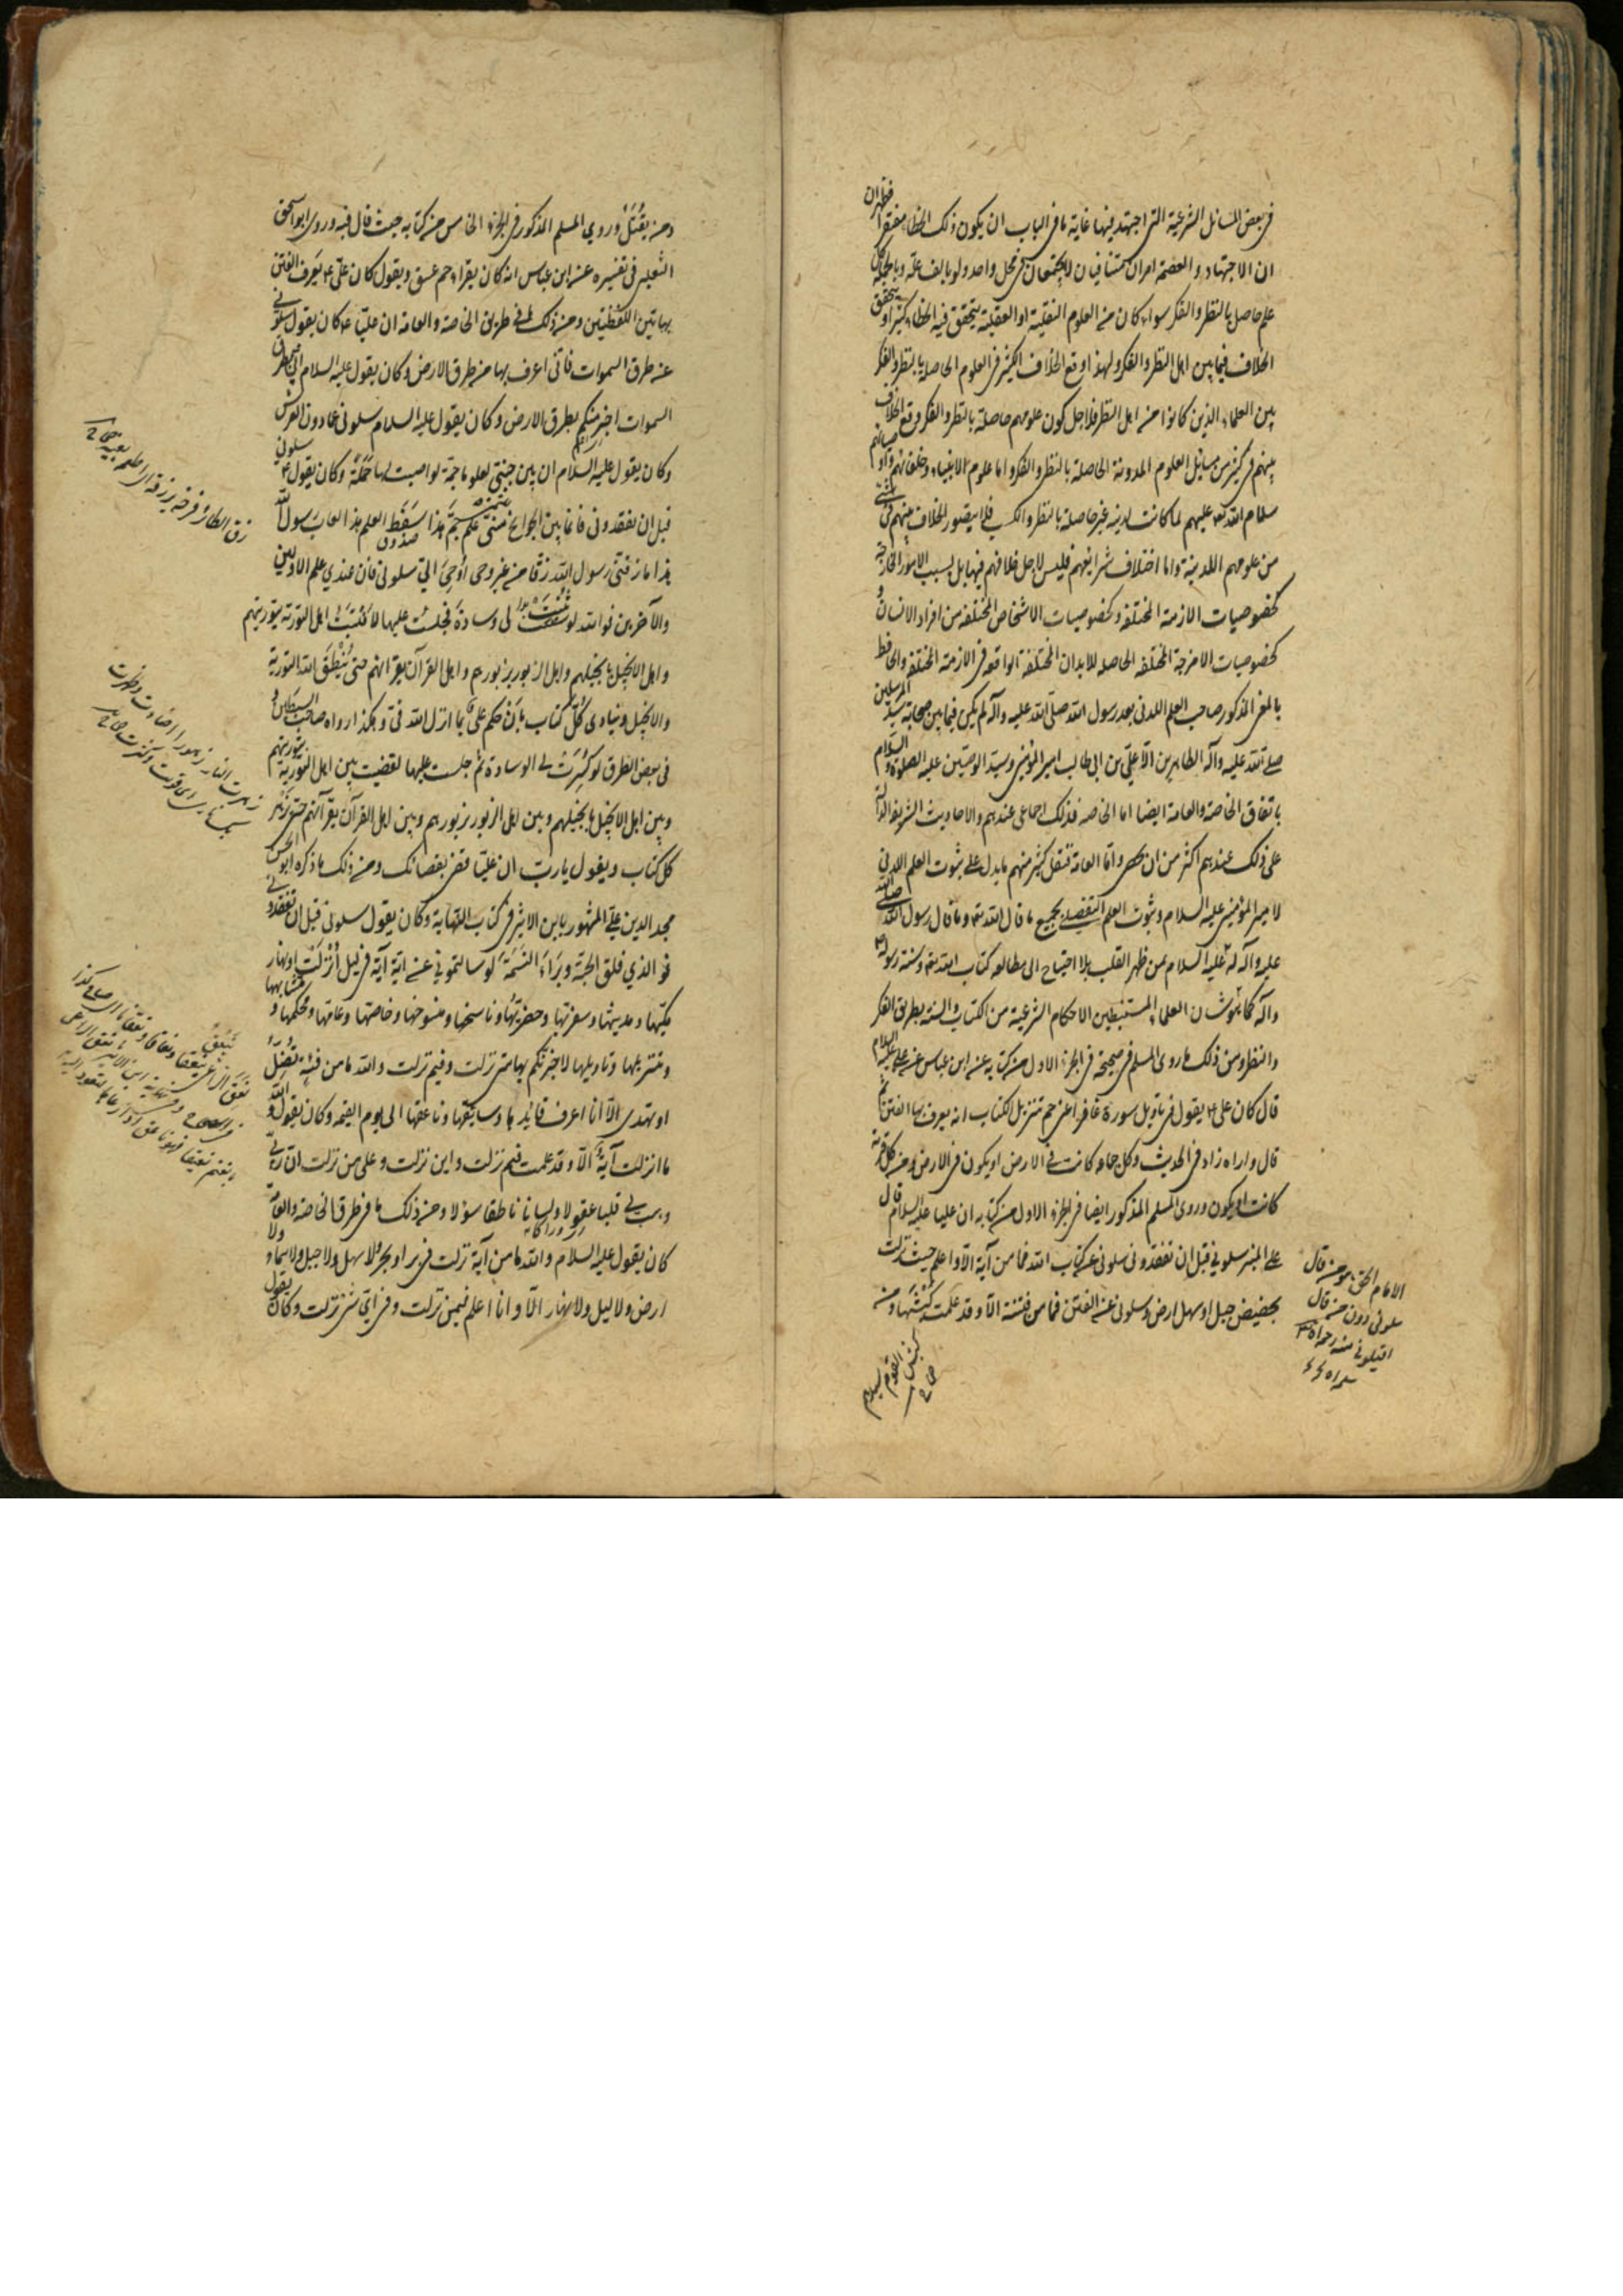 في بعض المسائل الشرعية التي اجتهد فيها غاية ما في الباب ان يكون ذلك الخطاء مغتفرا فظهر ان
ان الاجتهاد والعصمة امران متنافيان لا يجتمعان في محل واحد ولو بالف علة وبالجملة كل
علم حاصل بالنظر والفكر سواء كان من العلوم النقلية او العقلية يتحقق فيه الخطاء كثيرا و يتحقق
الخلاف فيما بين اهل النظر والفكر ولهذا وقع الخلاف الكثير في العلوم الحاصلة بالنظر والفكر
بين العلماء الذين كانوا من اهل النظر فلاجل كون علومهم حاصلة بالنظر والفكر وقع الخلاف
بينهم في كثير من مسائل العلوم المدونة الحاصلة بالنظر والفكر واما علوم الانبياء وخلفائهم واوصيائهم
سلام الله عليهم لما كانت لدنية غير حاصلة بالنظر والكسب فلا يتصور الخلاف بينهم في شيء
من علومهم اللدنية واما اختلاف شرائعهم فليس لاجل خلافهم فيها بل بسبب الامور الخارجة
كخصوصيات الازمنة المختلفة وكخصوصيات الاشخاص المختلفة من افراد الانسان و
كخصوصيات الامزجة المختلفة الحاصلة للابدان المختلفة الواقعة في الازمنة المختلفة والحافظ
بالمعنى المذكور صاحب العلم اللدني بعد رسول الله صلى الله عليه وآله لم يكن فيما بين صحابة سيد المرسلين
صلى الله عليه وآله الطاهرين الا علي بن ابي طالب امير المؤمنين وسيد الوصيين عليه الصلوة والسلام
باتفاق الخاصة والعامة ايضا اما الخاصة فذلك اجماعي عندهم والاحاديث الشريفة الدالة
على ذلك عندهم اكثر من ان يحصى واما العامة فنقل كثير منهم ما يدل على ثبوت العلم اللدني
لامير المؤمنين عليه السلام وثبوت العلم التفصيلي بجميع ما قال الله تعالى وما قال رسول الله صلى الله
عليه وآله له عليه السلام من ظهر القلب بلا احتياج الى مطالعة كتاب الله تعالى وسنة رسوله
وآله كما هو شان العلماء المستنبطين الاحكام الشرعية من الكتاب والسنة بطريق الفكر
والنظر ومن ذلك ما روى المسلم في صحيحه في الجزء الاول من كتابه عن ابن عباس عن علي عليه السلام
قال كان علي يقول في تاويل سورة غافر اعني حم تنزيل الكتاب انه يعرف بها الفتن ثم
قال واراه زاد في الحديث وكل جماعة كانت في الارض او يكون في الارض ومن كل قرية
كانت او يكون وروى المسلم المذكور ايضا في الجزء الاول من كتابه ان عليا عليه السلام قال
على المنبر سلوني قبل ان تفقدوني سلوني عن كتاب الله فما من آية الا واعلم حيث نزلت
بحضيض جبل او سهل ارض وسلوني عن الفتن فما من فتنة الا وقد علمت كبشها ومن
كبش القوم سيدهم
الامام الحق هو من قال
سلوني دون من قال
اقيلوني
ومن يقتل وروي المسلم المذكور في الجزء الخامس من كتابه حيث قال فيه وروى ابو اسحق
الثعلبي في تفسيره عن ابن عباس انه كان يقراء حم عسق ويقول كان علي يعرف الفتن
بهاتين اللفظتين ومن ذلك ما في طريق الخاصة والعامة ان عليا كان يقول سلوني
عن طرق السموات فاني اعرف بها من طرق الارض وكان يقول عليه السلام اني بطرق
السموات اخبر منكم بطرق الارض وكان يقول عليه السلام سلوني عما دون العرش
وكان يقول عليه السلام ان بين جنبي لعلوما جمة لو اصبت لها حملة وكان يقول سلوني
قبل ان تفقدوني فانما بين الجوانح مني علم جم هذا سفط العلم هذا لعاب رسول الله
هذا ما زقني رسول الله زقا من غير وحي اوحي الي سلوني فان عندي علم الاولين
والآخرين فوالله لو ثنيت لي وسادة فجلست عليها لافتيت اهل التورية بتوريتهم
واهل الانجيل بانجيلهم واهل الزبور بزبورهم واهل القرآن بقرآنهم حتى ينطق الله التورية
والانجيل وينادى كل كتاب بان حكم علي بما انزل الله في وهكذا رواه صاحب
في بعض الطرق لو كسرت لي الوسادة ثم جلست عليها لقضيت بين اهل التورية بتوريتهم
وبين اهل الانجيل بانجيلهم وبين اهل الزبور بزبورهم وبين اهل القرآن بقرآنهم حتى يزهر
كل كتاب ويقول يا رب ان عليا قضى بقضائك ومن ذلك ما ذكره ابو الحسن
مجد الدين علي المشهور بابن الاثير في كتاب النهاية وكان يقول سلوني قبل ان تفقدوني
فوالذي فلق الحبة وبراء النسمة لو سالتموني عن اية آية في ليل انزلت او نهار
مكيها ومدنيها وسفريها وحضريها وناسخها ومنسوخها وخاصها وعامها ومحكمها ومتشابهها
وتنزيلها وتاويلها لاخبرتكم بها متى نزلت وفيم نزلت والله ما من فئة تضل
او تهتدي الا انا اعرف قائدها وسايقها وناعقها الى يوم القيمة وكان يقول والله
ما انزلت آية الا وقد علمت فيم نزلت واين نزلت وعلى من نزلت ان ربي
وهب لي قلبا عقولا ولسانا ناطقا سؤلا ومن ذلك ما في طرق الخاصة والعامة
كان يقول عليه السلام والله ما من آية نزلت في بر او بحر ولا سهل ولا جبل ولا سماء ولا
ارض ولا ليل ولا نهار الا وانا اعلم فيمن نزلت وفي اي شيء نزلت وكان يقول
زق الطائر فرخه يزقه اي اطعمه بفيه
زهرت النار زهورا اضاءت
نعق الراعي بغنمه